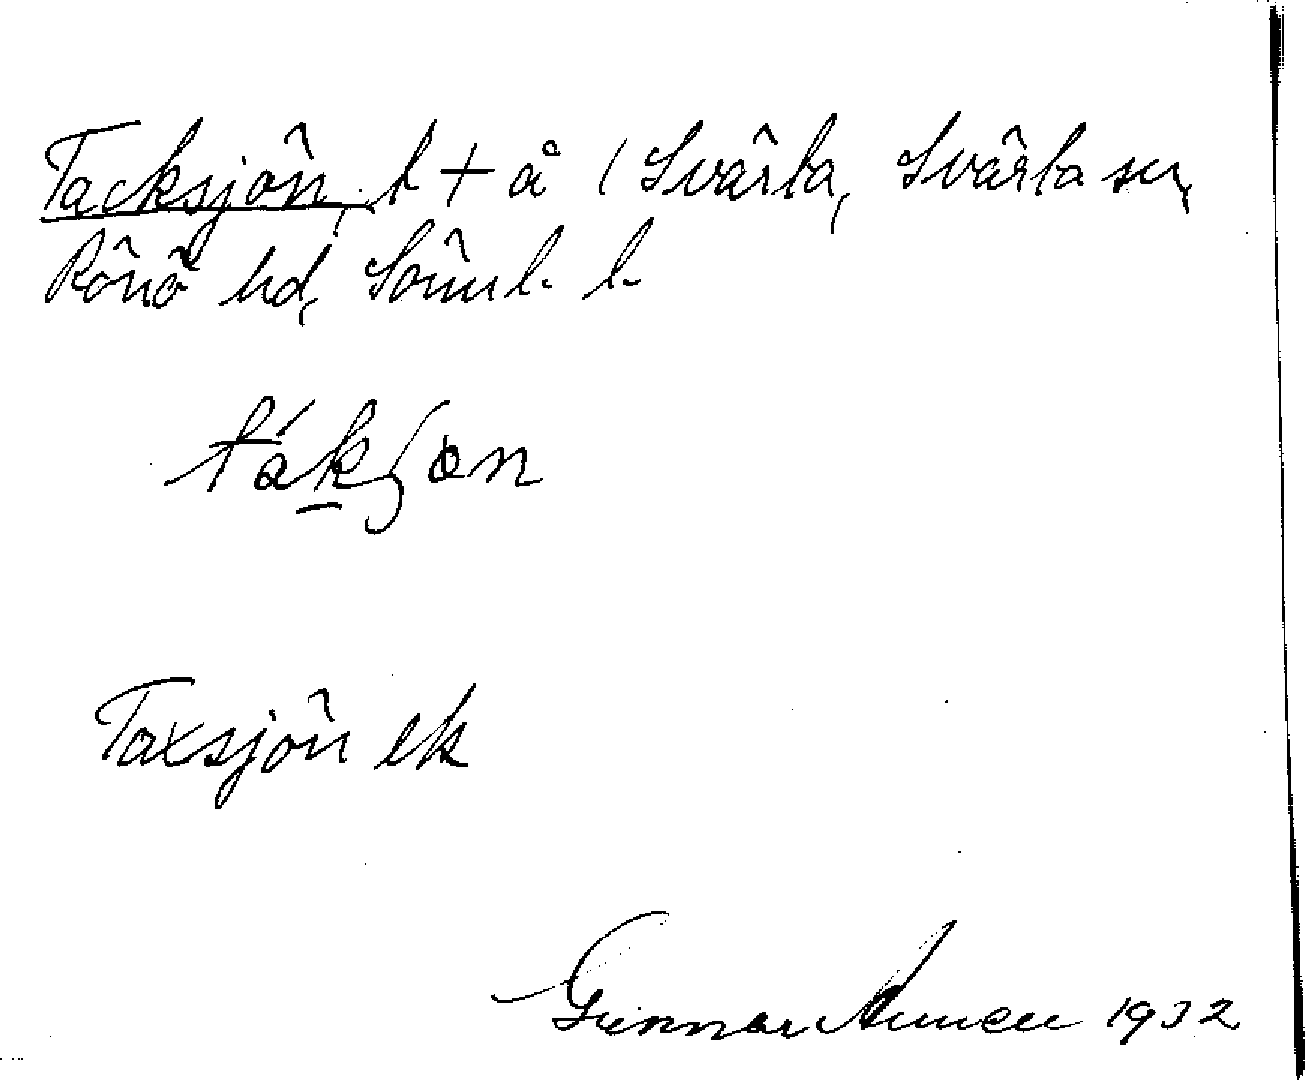 Tacksjön, t + å (Svärta, Svärta sn,
Rönö hd, Söml. l.
tákʃɵn
Taxsjön ek
Gunnar 1932